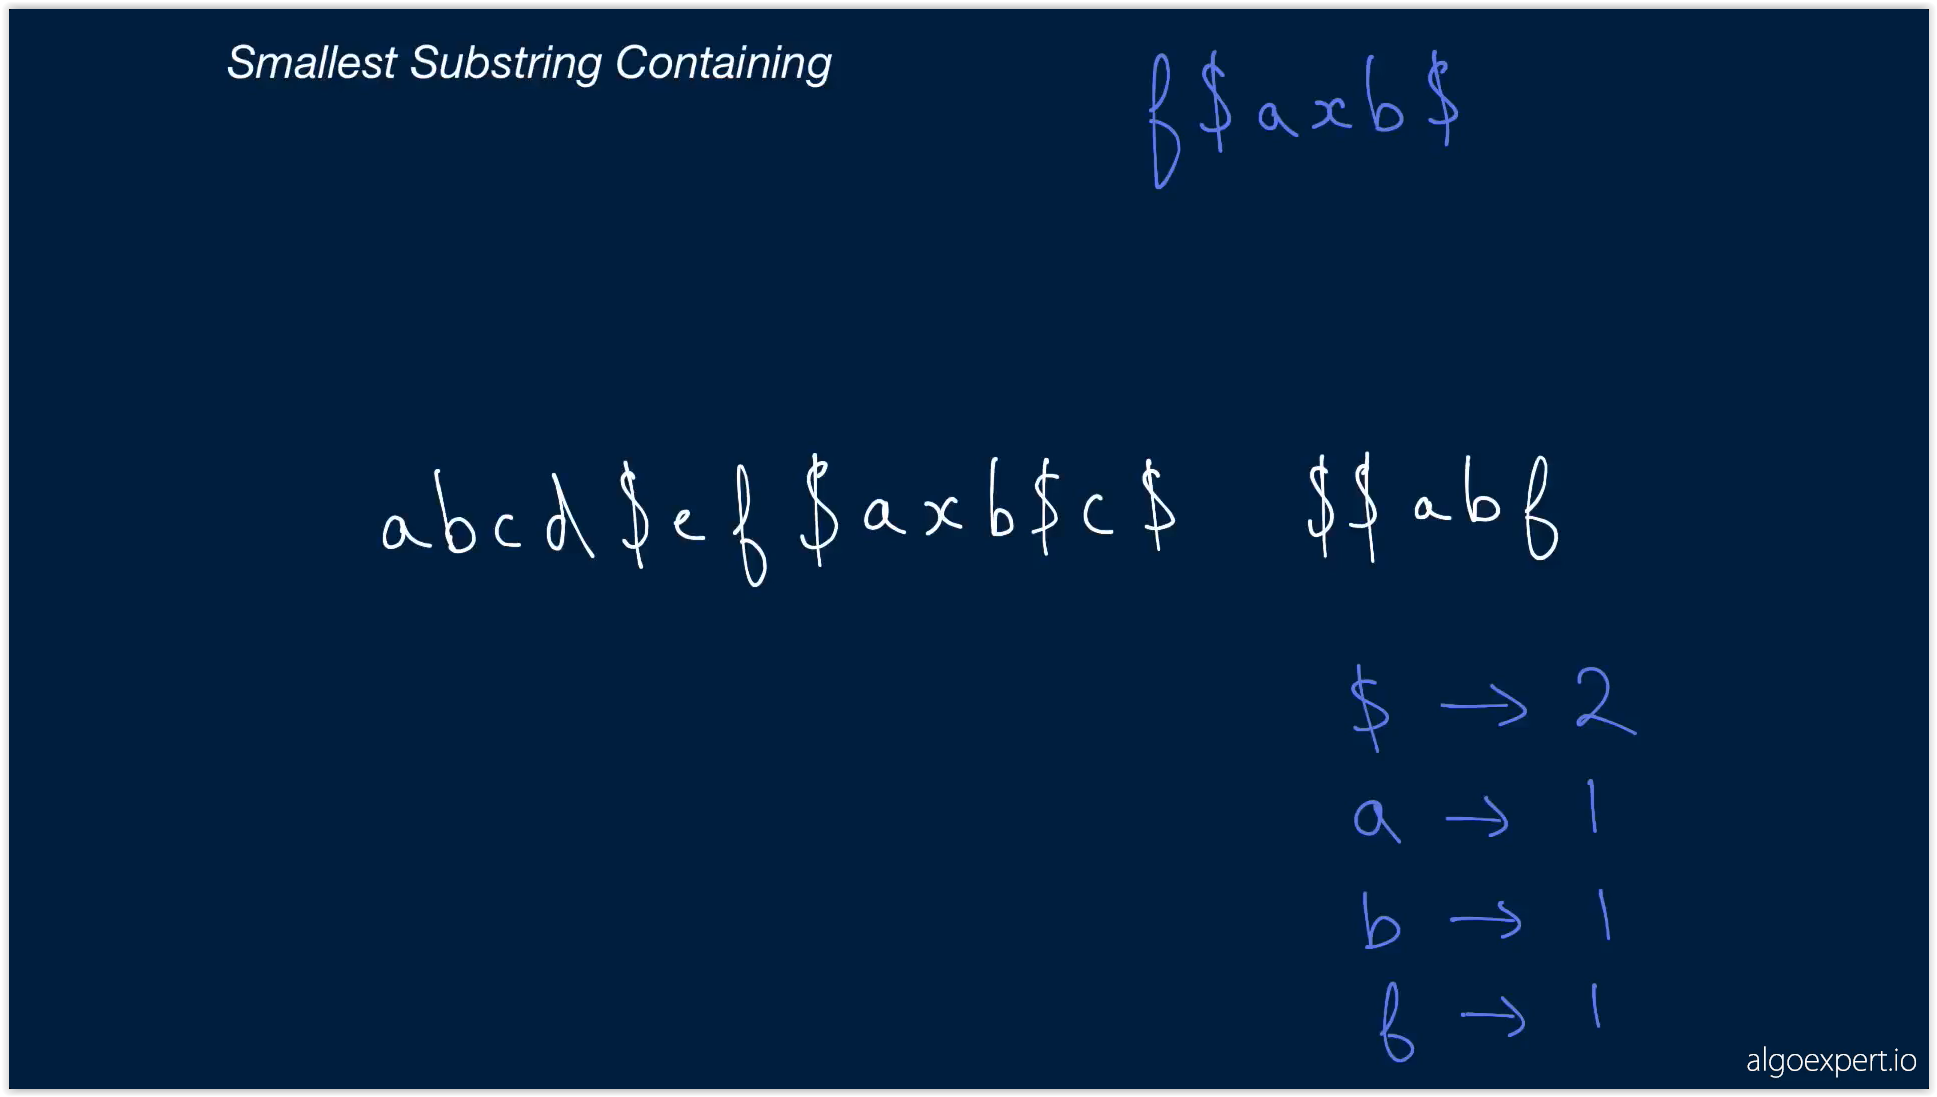 Smallest Substring Containing
f$axb$
abcd$ef$axb$c$ $$abf
$ → 2
a → 1
b → 1
f → 1
algoexpert.io